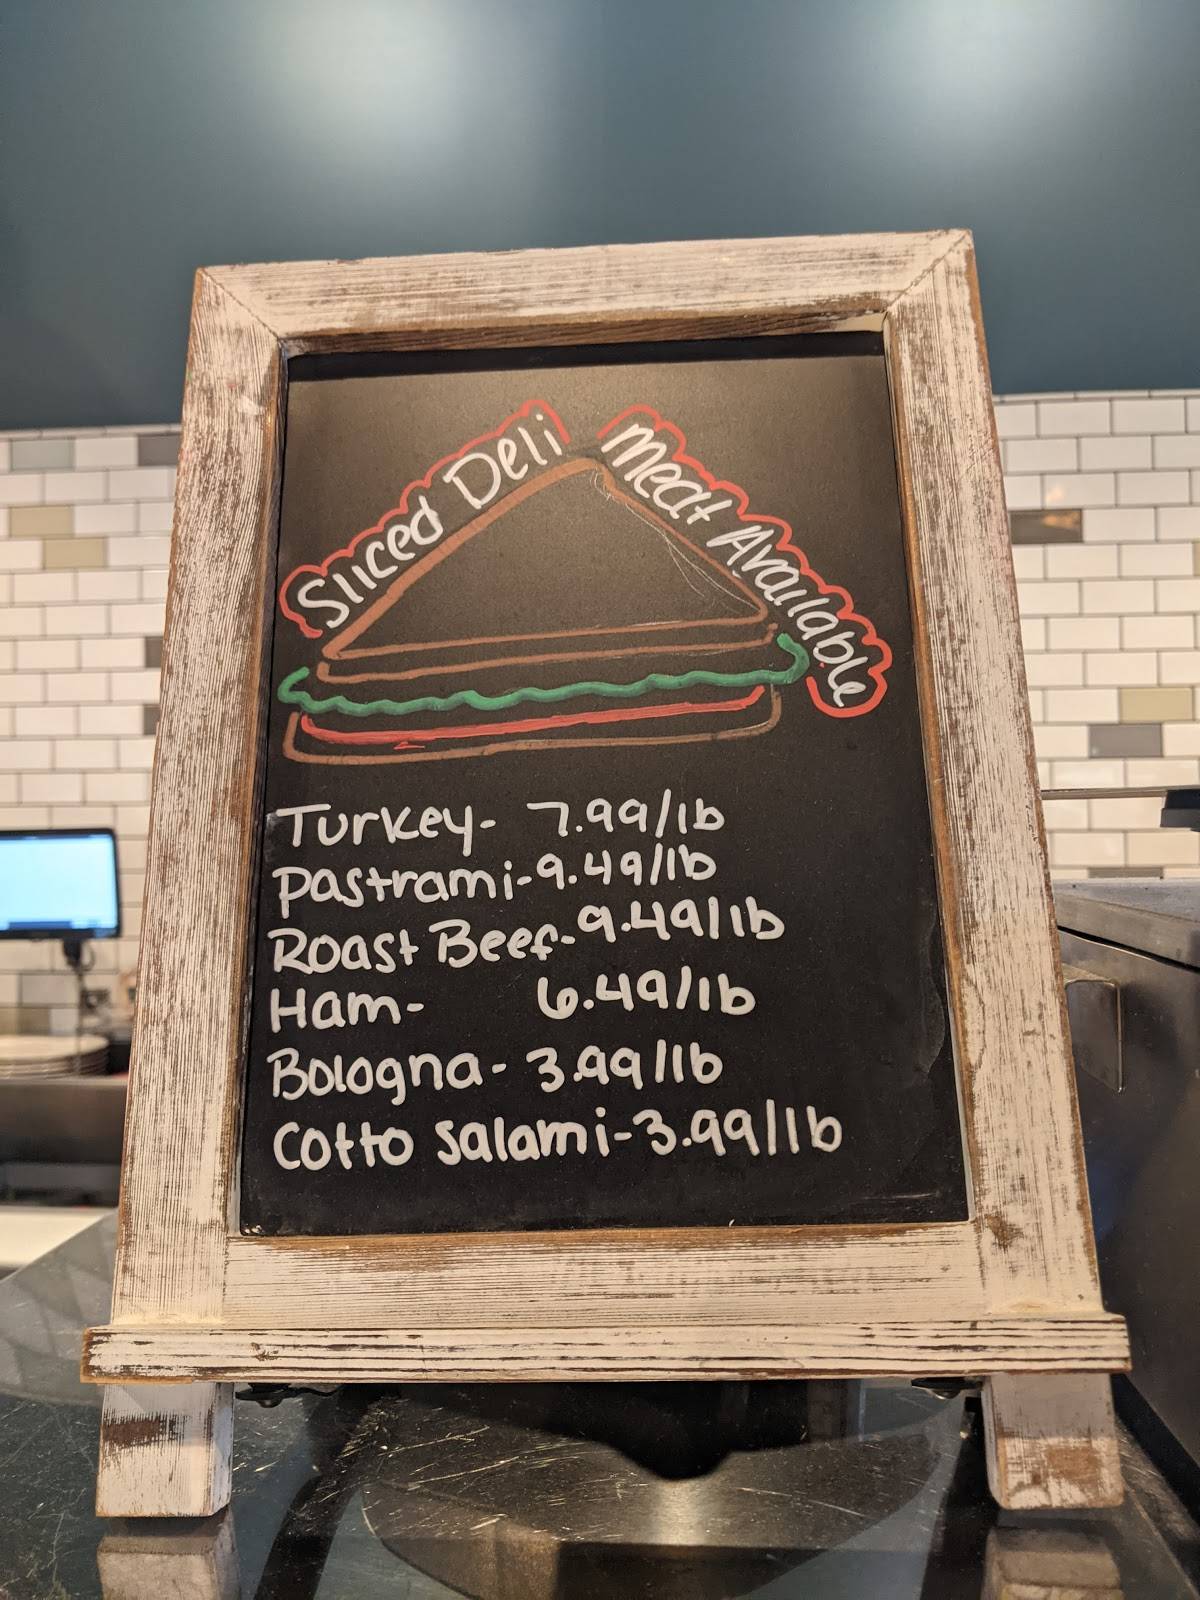 Sliced Deli Meat Available
Turkey- 7.99/lb
Pastrami-9.49/lb
Roast Beef-9.49/lb
Ham- 6.49/lb
Bologna- 3.99/lb
Cotto Salami-3.99/lb